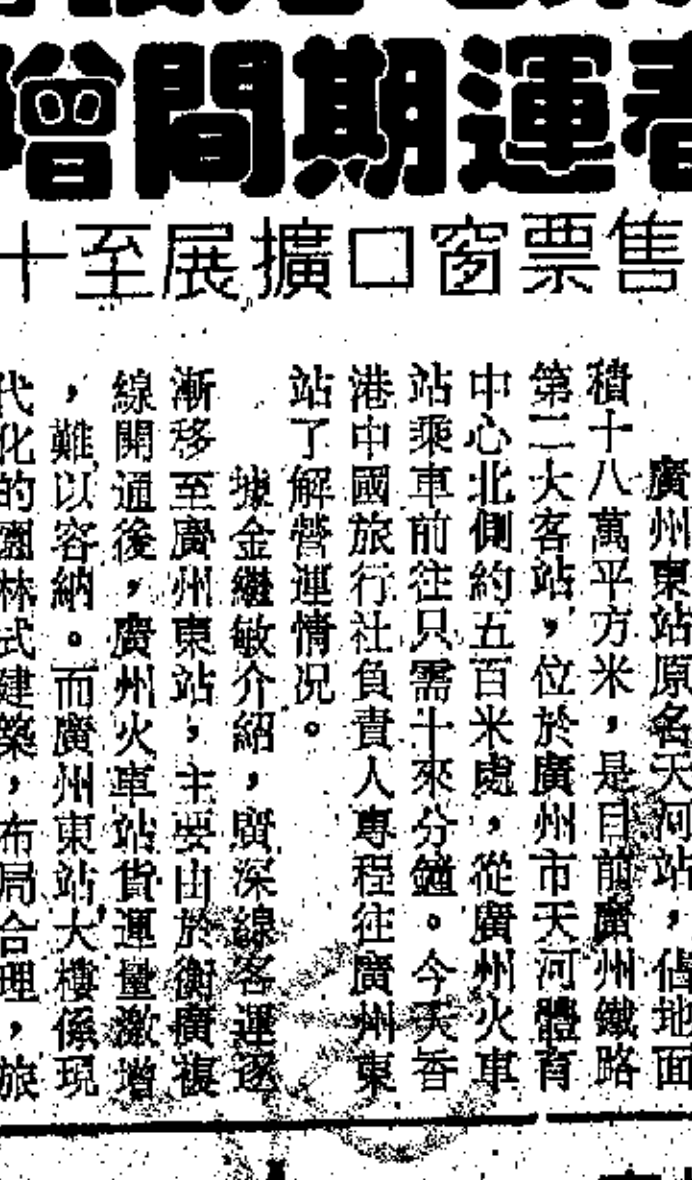 春運期間增
售票窗口擴展至十
廣州東站原名天河站，佔地面
積十八萬平方米，是目前廣州鐵路
第二大客站，位於廣州市天河體育
中心北側約五百米處，從廣州火車
站乘車前往只需十來分鐘。今天香
港中國旅行社負責人專程往廣州東
站了解營運情况。
據金繼敏介紹，廣深線客運逐
漸移至廣州東站，主要由於衡廣複
線開通後，廣州火車站貨運量激增
，難以容納。而廣州東站大樓係現
代化的園林式建築，布局合理，旅